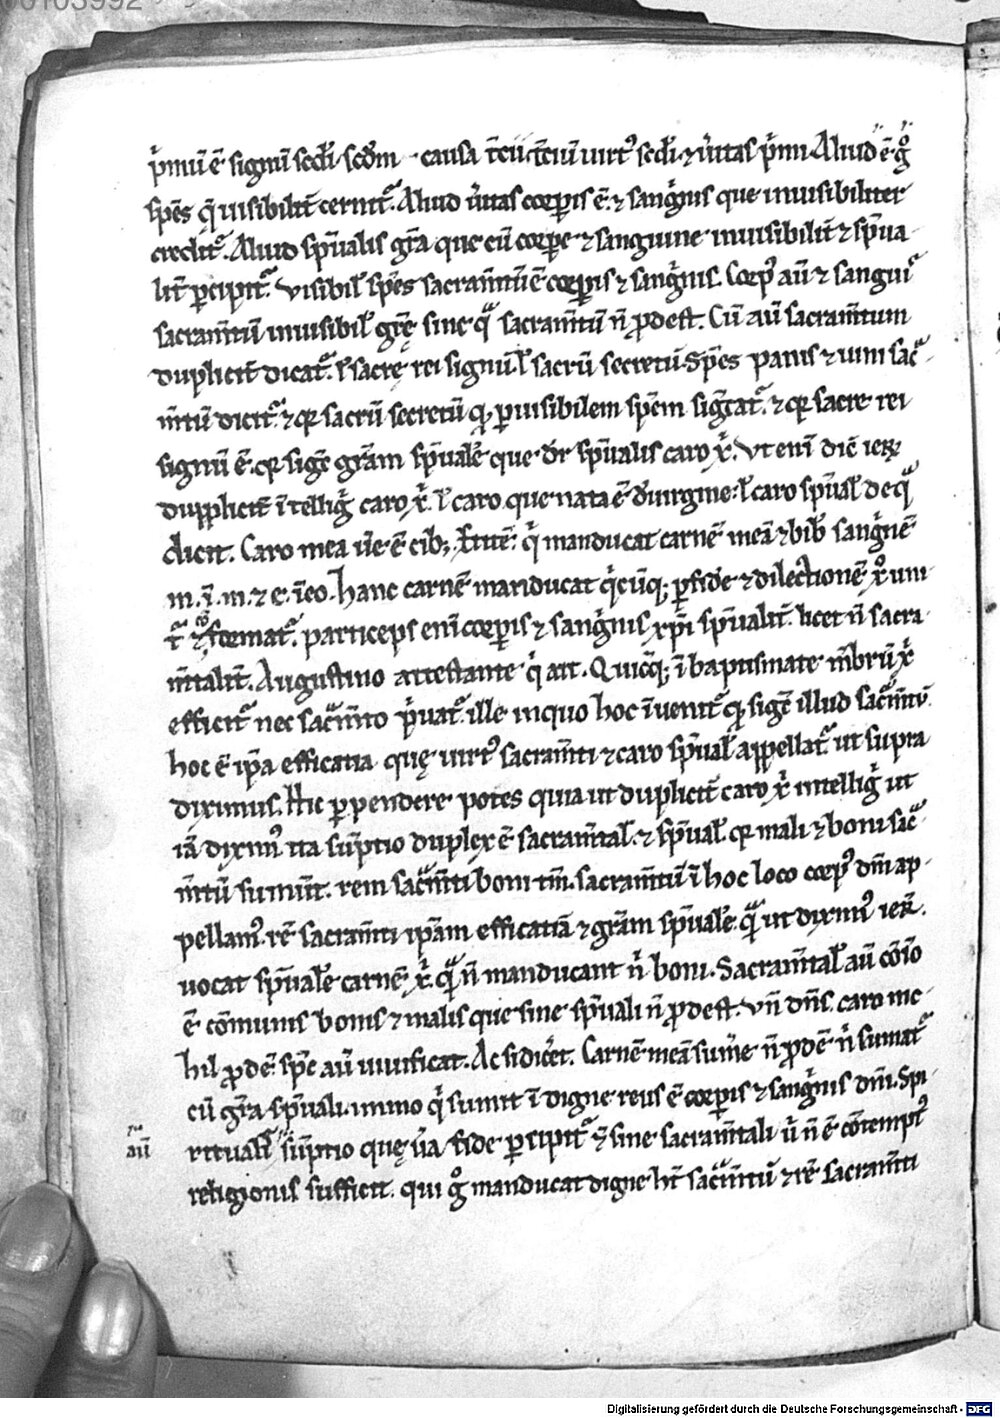 00103992
p̄mū ē signū sedi. scdm causa tcii. tcium uirt᷒ sedi. ⁊ u̅itas p̄mi. Aliud ē g̊
spēs q̄ uisibilit̄ cernit᷑. Aliud u̅itas corꝑis ē. ⁊ sang̍nis que inuisibiliter
credit᷑. Aliud sp̄ualis gr̄a que cū corpore ⁊ sanguine inuisibilit̄ ⁊ sp̄ua
lit̄ ꝑcipit᷑. visibil̛ spēs sacram̄tū ē corꝑis ⁊ sang̍nis. Corp᷒ aū ⁊ sangui᷒
sacram̄tū inuisibil̛ grē sine qᵃ sacram̄tū n̄ ꝓdest. Cū aū sacram̄tum
duplicit̄ dicat᷑. ł sacrę rei signū. ł sacrū secretū. Spēs panis ⁊ uini sac̄ᵃ
m̄tū dicit᷑. ⁊ qꝛ sacrū secretū ꝑ uisibilem spēm sig̍tat᷑. ⁊ qꝛ sacre rei
signū ē. qꝛ sig̍t gr̄am sp̄ualē que dr̄ sp̄ualis caro x̍. Vt enī dic̄ ier̄
duplicit̄ ītellig̍ caro x̍. ł caro que nata ē d̄ uirgine. ł caro sp̄ual̛ de qᵃ
dicit. Caro mea ūe ē cib; Itē. q̍ manducat carnē meā ⁊ bib̄ sang̍nē
m. ī. m. ⁊ e. ī eo. hanc carnē manducat q̍cūq; ꝑ fidē ⁊ dilectionē xº uni
t᷑ ⁊ ꝯformat᷑. particeps enī corꝑis ⁊ sang̍nis xp̄i sp̄ualit̄. licet n̄ sacra
m̄talit̄. Augustino attestante q̍ ait. Quicq; ī baptismate m̄brū x̍
efficit᷑ nec sacᵃm̄to p̍uat᷑ ille in quo hoc īuenit᷑ qd sig̍t illud sacᵃm̄tū.
hoc ē ip̄a efficatia quę uirt᷒ sacram̄ti ⁊ caro sp̄ual̛ appellat᷑ ut supra
diximus. Hic ꝑpendere potes quia ut duplicit̄ caro x̍ intellig̍ ut
iā dixim᷒ ita sūptio duplex ē sacram̄tal̛. ⁊ sp̄ual̛. qꝛ mali ⁊ boni sacᵃ
m̄tū sumūt. rem sacᵃm̄ti boni tm̄. sacram̄tū ī hoc loco corp᷒ dn̄i ap
pellam᷒. rē sacram̄ti ip̄am efficatiā ⁊ gr̄am sp̄ualē. qᵃ ut dixim᷒ ier̄.
uocat sp̄ualē carnē x̍. qᵃ n̄ manducant n̍ boni. Sacram̄tal̛ aū cōio
ē cōmunis bonis ⁊ malis que sine sp̄uali n̄ ꝓdest. Vn̄ dn̄s. caro ni
hil ꝓdē. sp̄c aū uiuificat. Ac si dicet̄. Carnē meā sumē n̄ ꝓdē n̍ sumat᷑
cū gr̄a sp̄uali. immo q̍ sumit īdigne reus ē corꝑis ⁊ sang̍nis dn̄i. Spi
aū
ritualis sūptio quę ūa fide ꝑcipit᷑ ⁊ sine sacram̄tali ū n̄ ē cōtempt᷒
religionis sufficit. qui g̊ manducat digne ht̄ sacᵃm̄tū ⁊ rē sacram̄ti
Digitalisierung gefördert durch die Deutsche Forschungsgemeinschaft - DFG